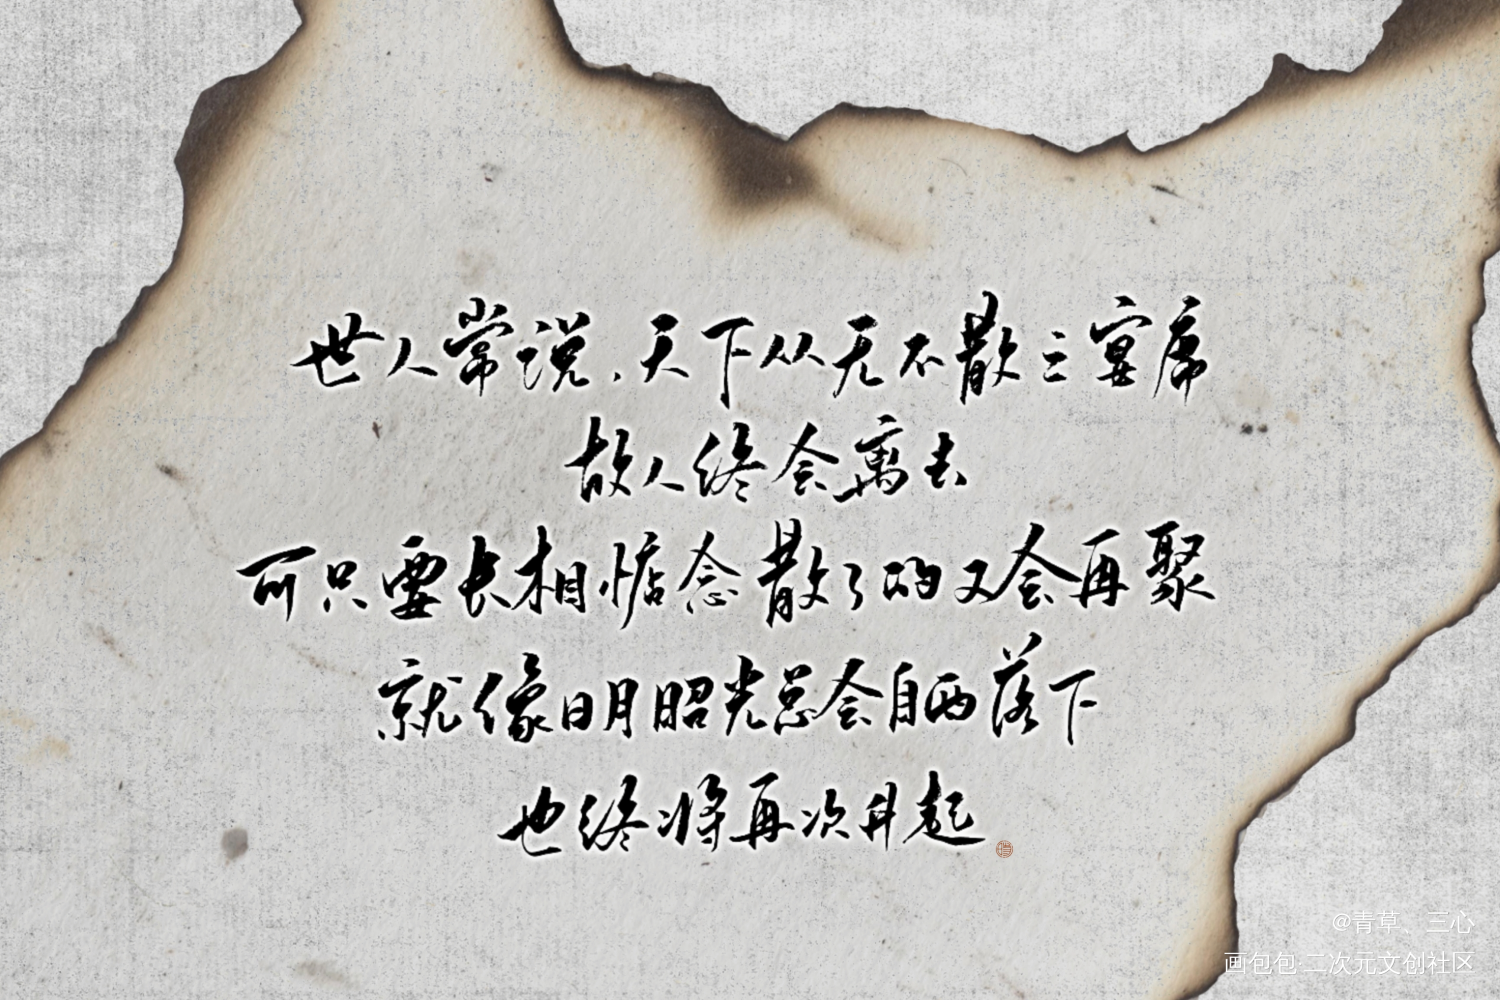 世人常说，天下从无不散之宴席
故人终会离去
可只要长相惦念散了的又会再聚
就像明月昭光总会自西落下
也终将再次升起
@青草、三心
画包包·二次元文创社区